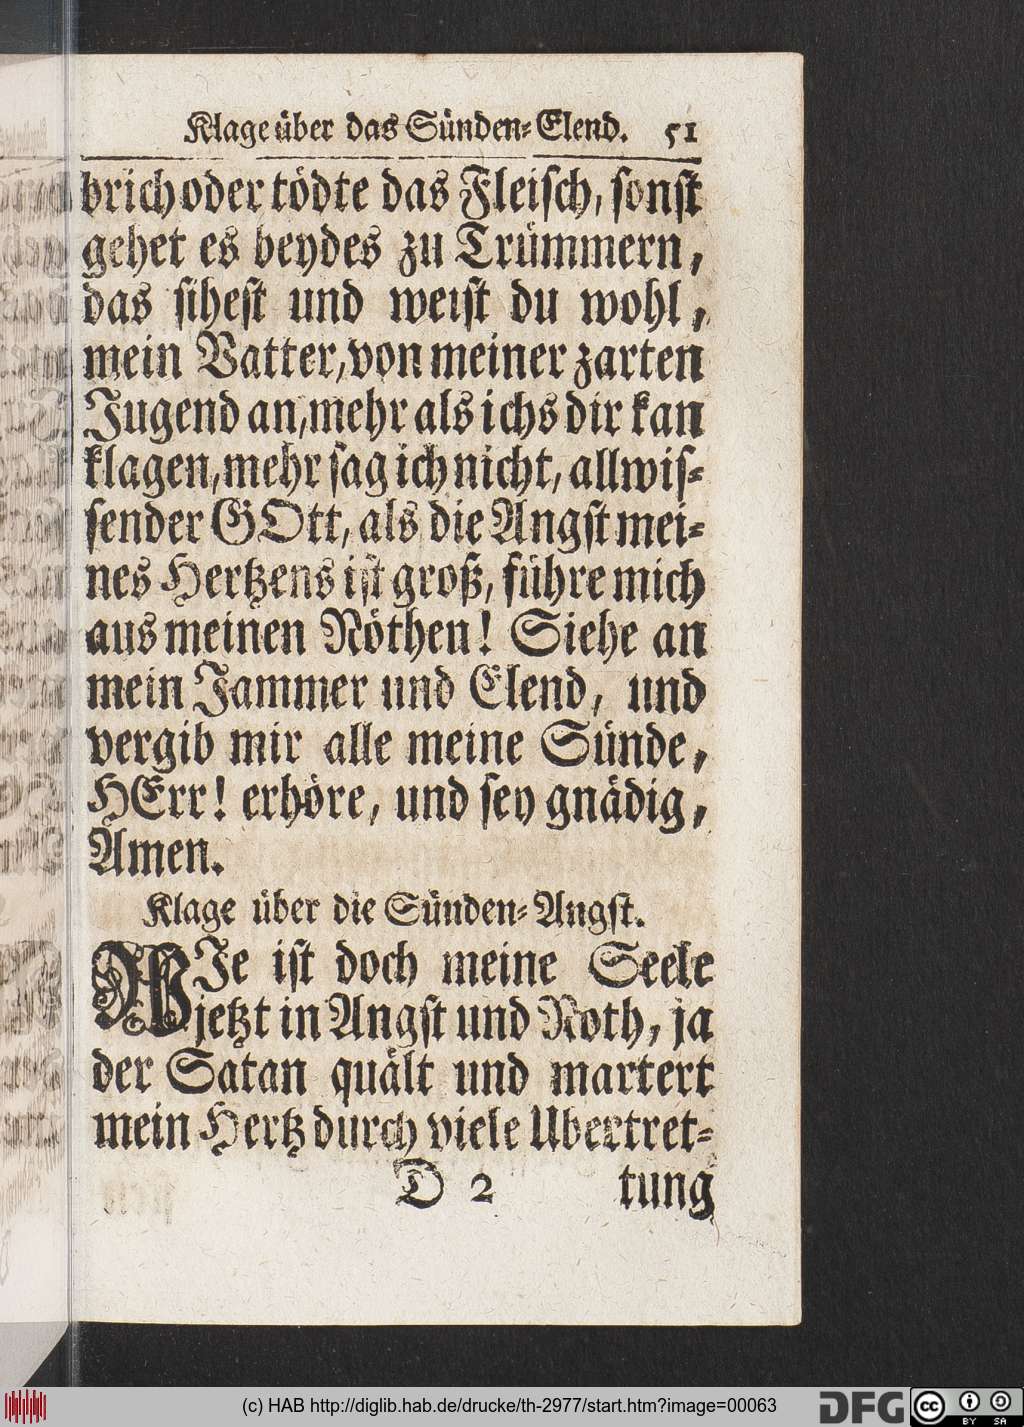 Klage über das Sünden-Elend. 51
brich oder tödte das Fleisch, sonst
gehet es beydes zu Trümmern,
das sihest und weist du wohl,
mein Vatter, von meiner zarten
Jugend an, mehr als ichs dir kan
klagen, mehr sag ich nicht, allwis-
sender GOtt, als die Angst mei-
nes Hertzens ist groß, führe mich
aus meinen Nöthen! Siehe an
mein Jammer und Elend, und
vergib mir alle meine Sünde,
HErr! erhöre, und sey gnädig,
Amen.
Klage über die Sünden-Angst.
WJe ist doch meine Seele
jetzt in Angst und Noth, ja
der Satan quält und martert
mein Hertz durch viele Ubertret-
D 2 tung
(c) HAB http://diglib.hab.de/drucke/th-2977/start.htm?image=00063
DFG
cc BY SA